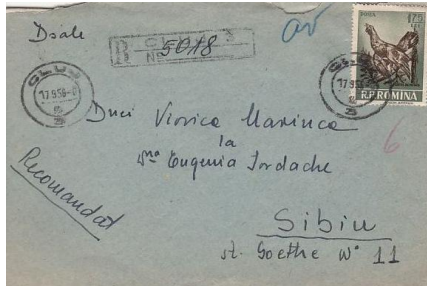 av
R CLUJ 3
5018
Nº
CLUJ
17.9.56
3
CLUJ
17.9.56
3
R.P.ROMINA
6
Duci Viorica Marinca
la
Eugenia Iordache
Recomandat
Sibiu
st. Goethe Nº 11